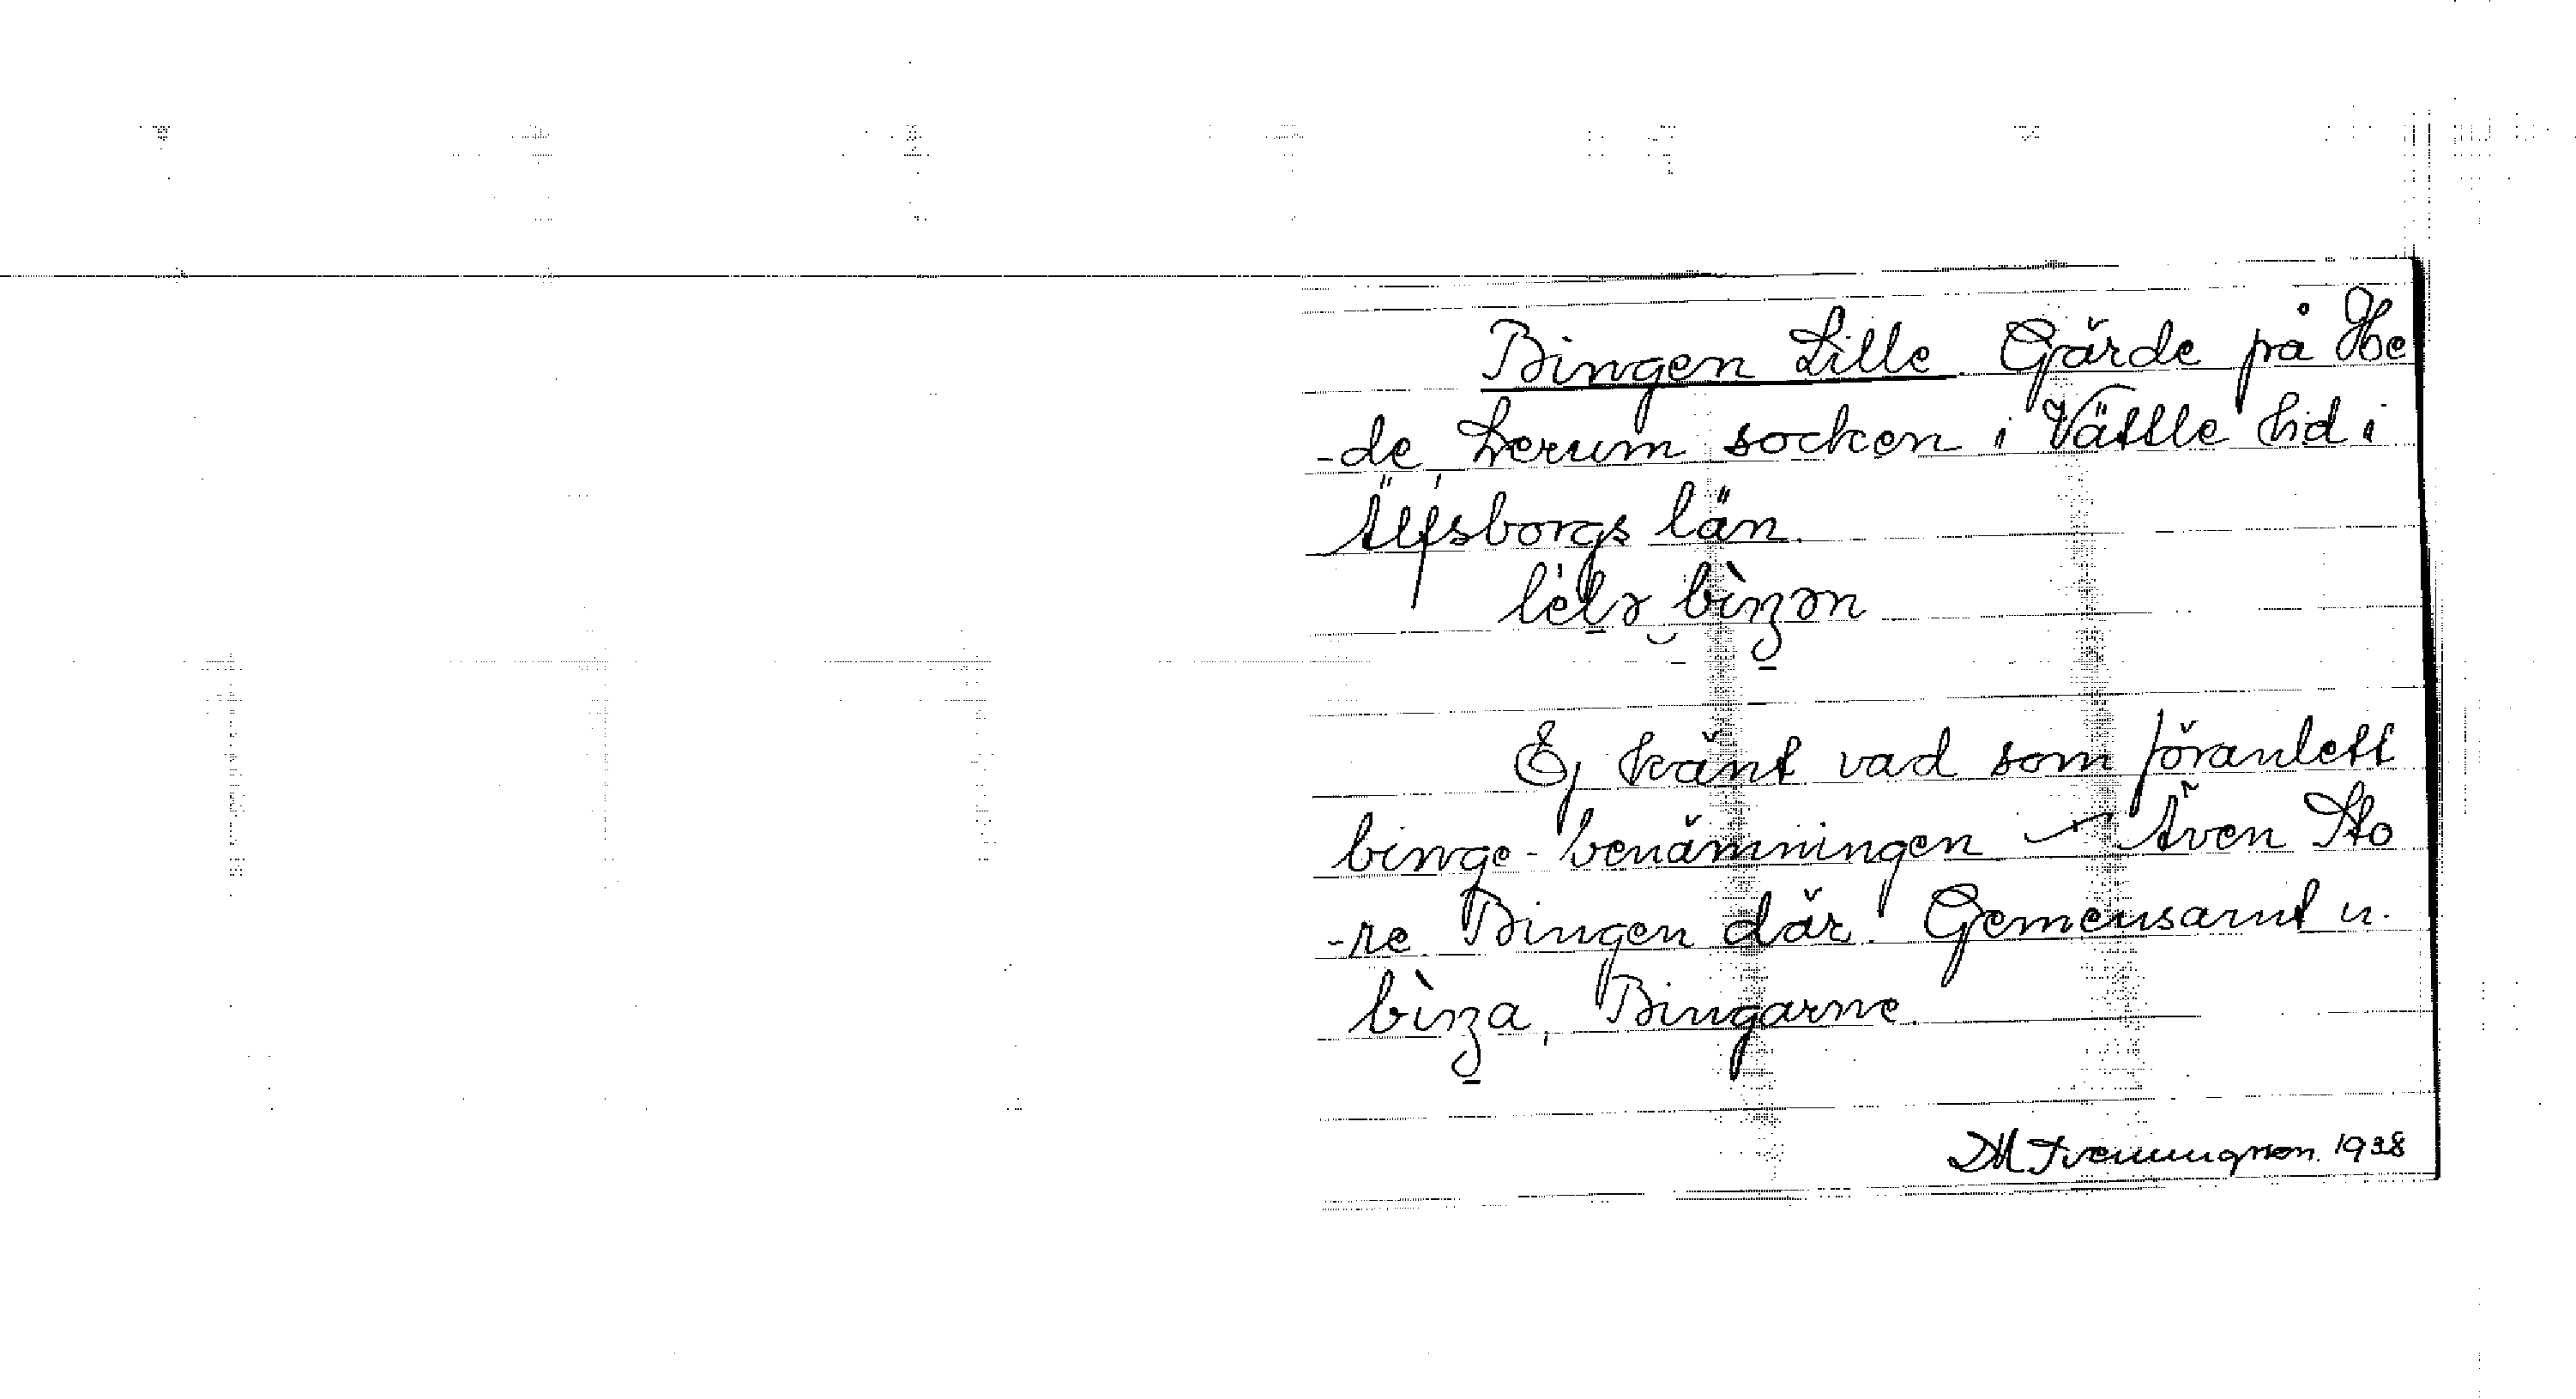 Bingen Lille. Gärde på He
-de, Lerum socken i Vättle hd i
Älfsborgs län.
lèlə bìŋən
Ej känt vad som föranlett
binge-benämningen – Även Sto
-re Bingen där. Gemensamt n.
bìŋa, Bingarne.
1938